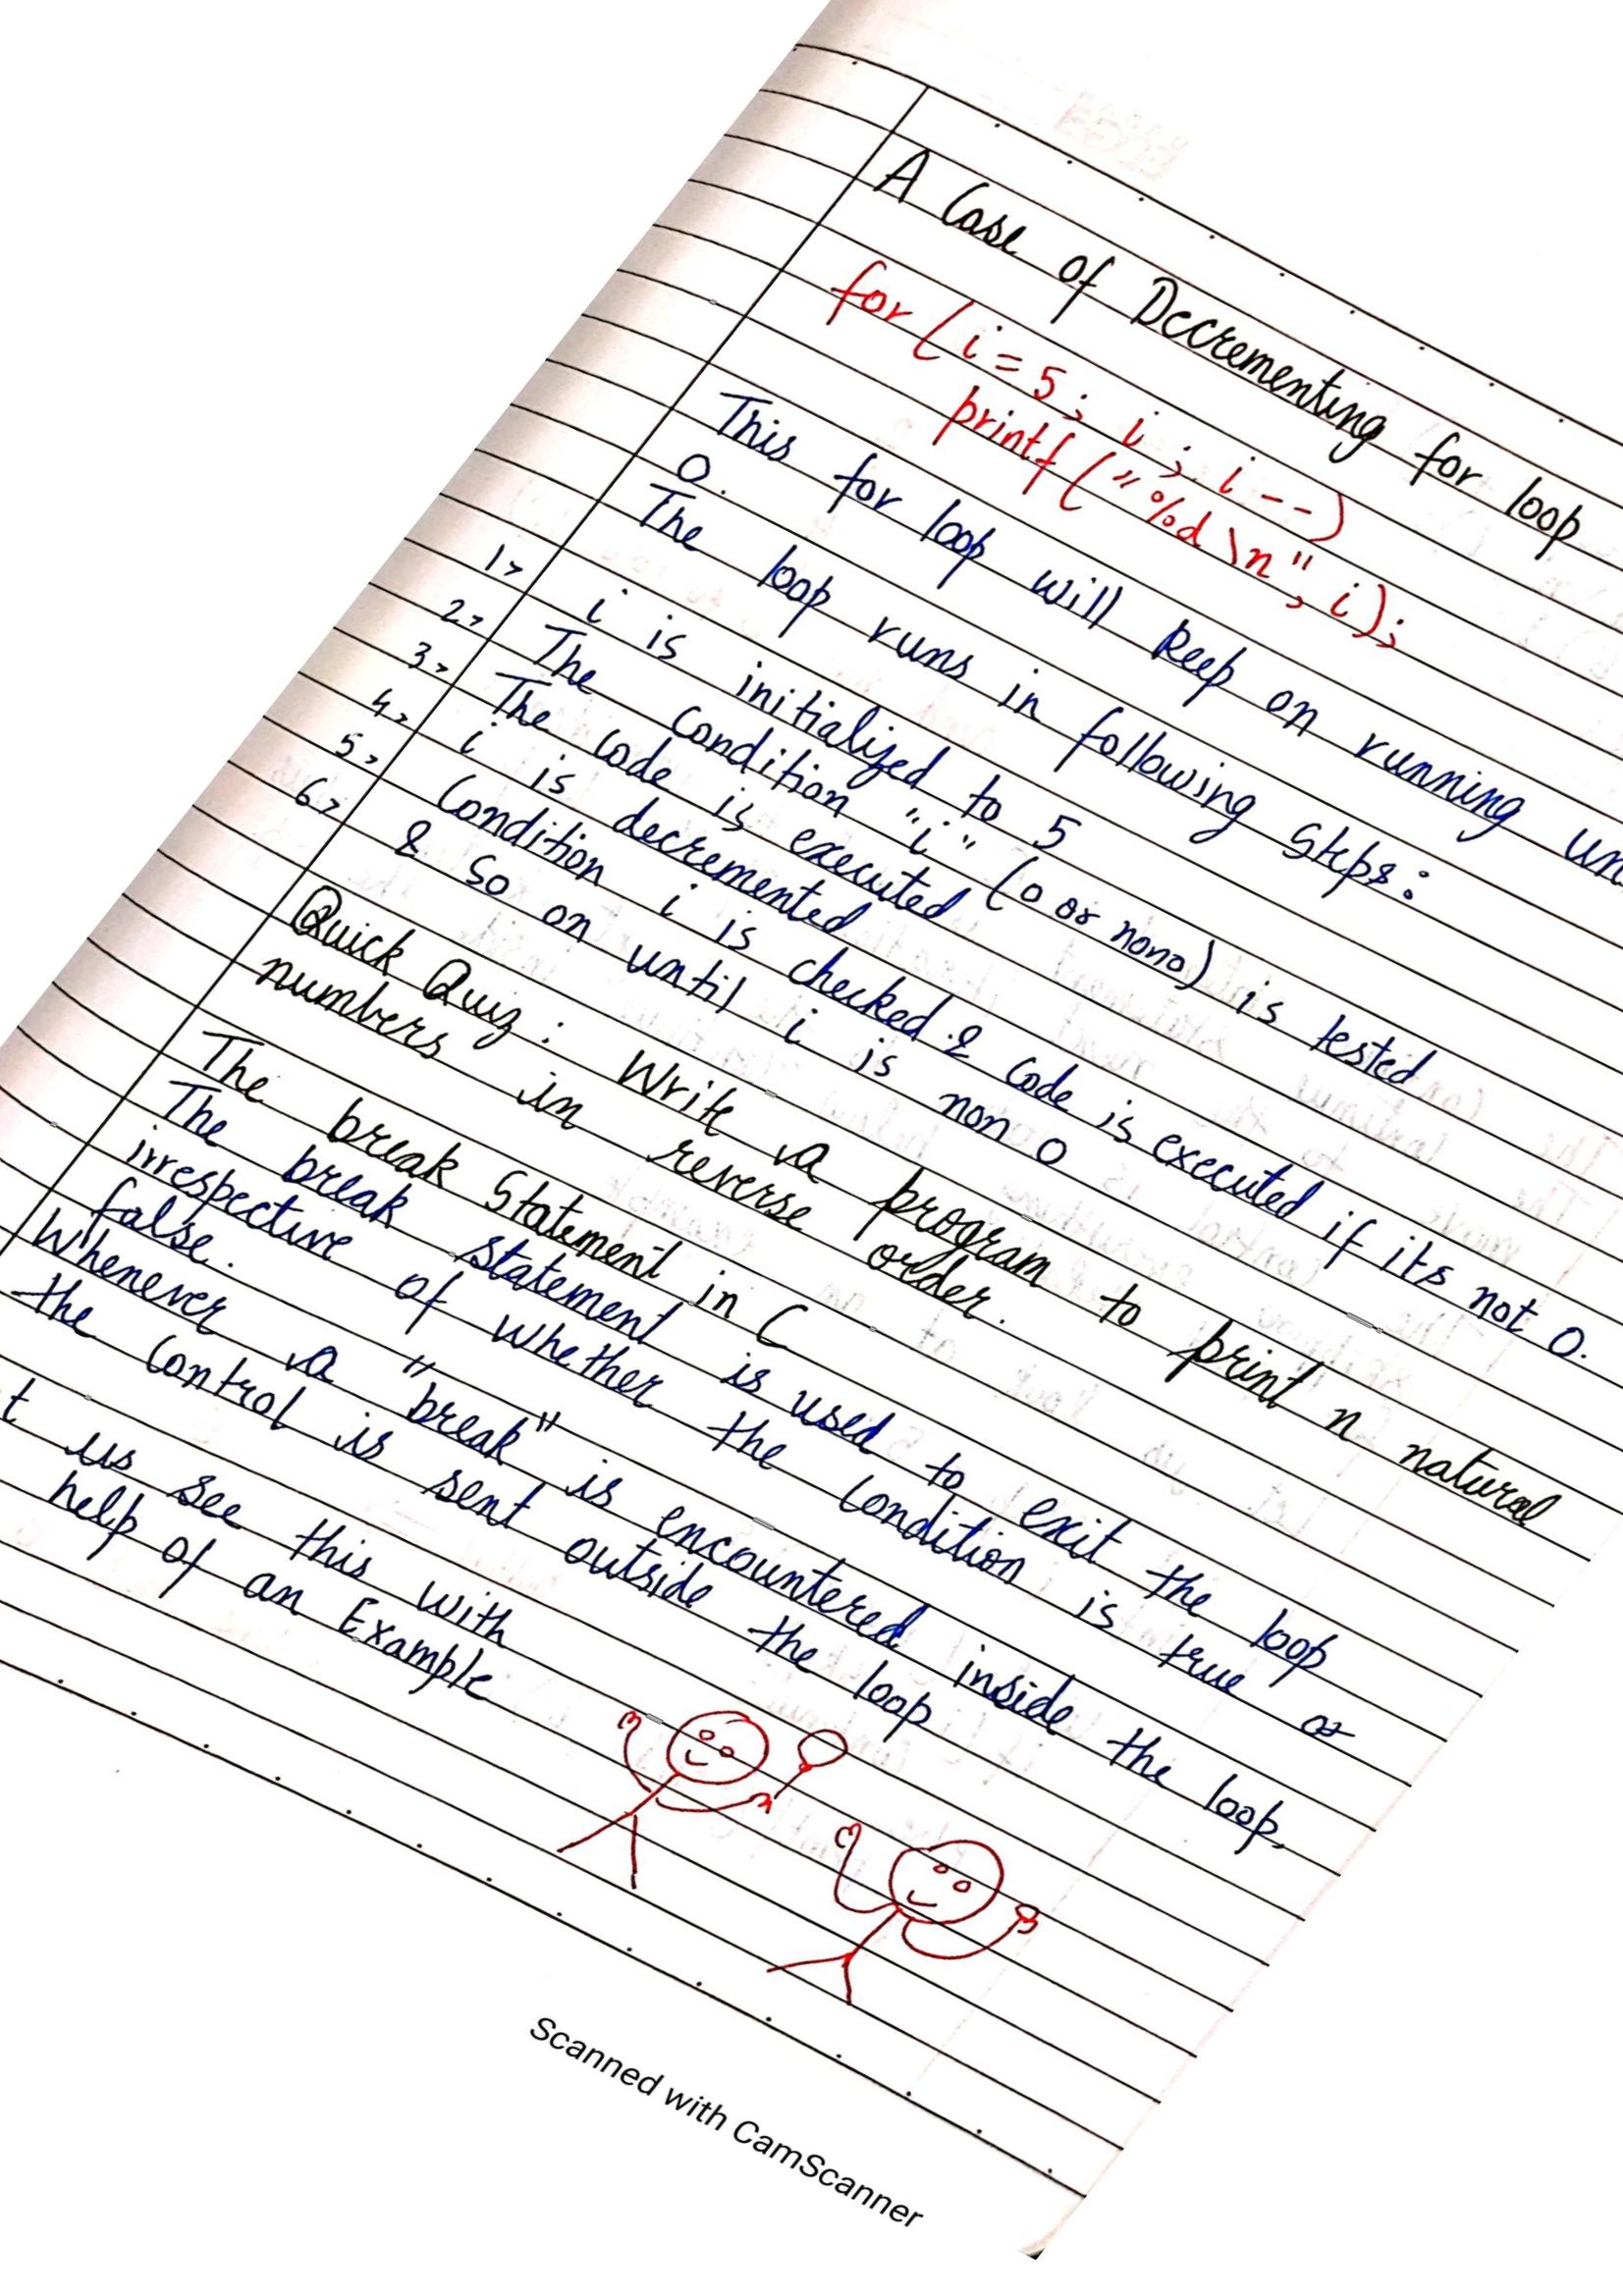 A Case of Decrementing for loop
for (i = 5; i; i--)
printf("%d\n", i);
This for loop will keep on running
0.
The loop runs in following steps:
1> i is initialized to 5
2> The condition "i" (0 or non0) is tested
3> The code is executed
4> i is decremented
5> Condition i is checked & code is executed if its not 0.
6> & so on until i is non 0
Quick Quiz: Write a program to print n natural
numbers in reverse order.
The break Statement in C
The break statement is used to exit the loop
irrespective of whether the condition is true or
false.
Whenever a "break" is encountered inside the loop,
the control is sent outside the loop
us see this with
help of an Example
Scanned with CamScanner